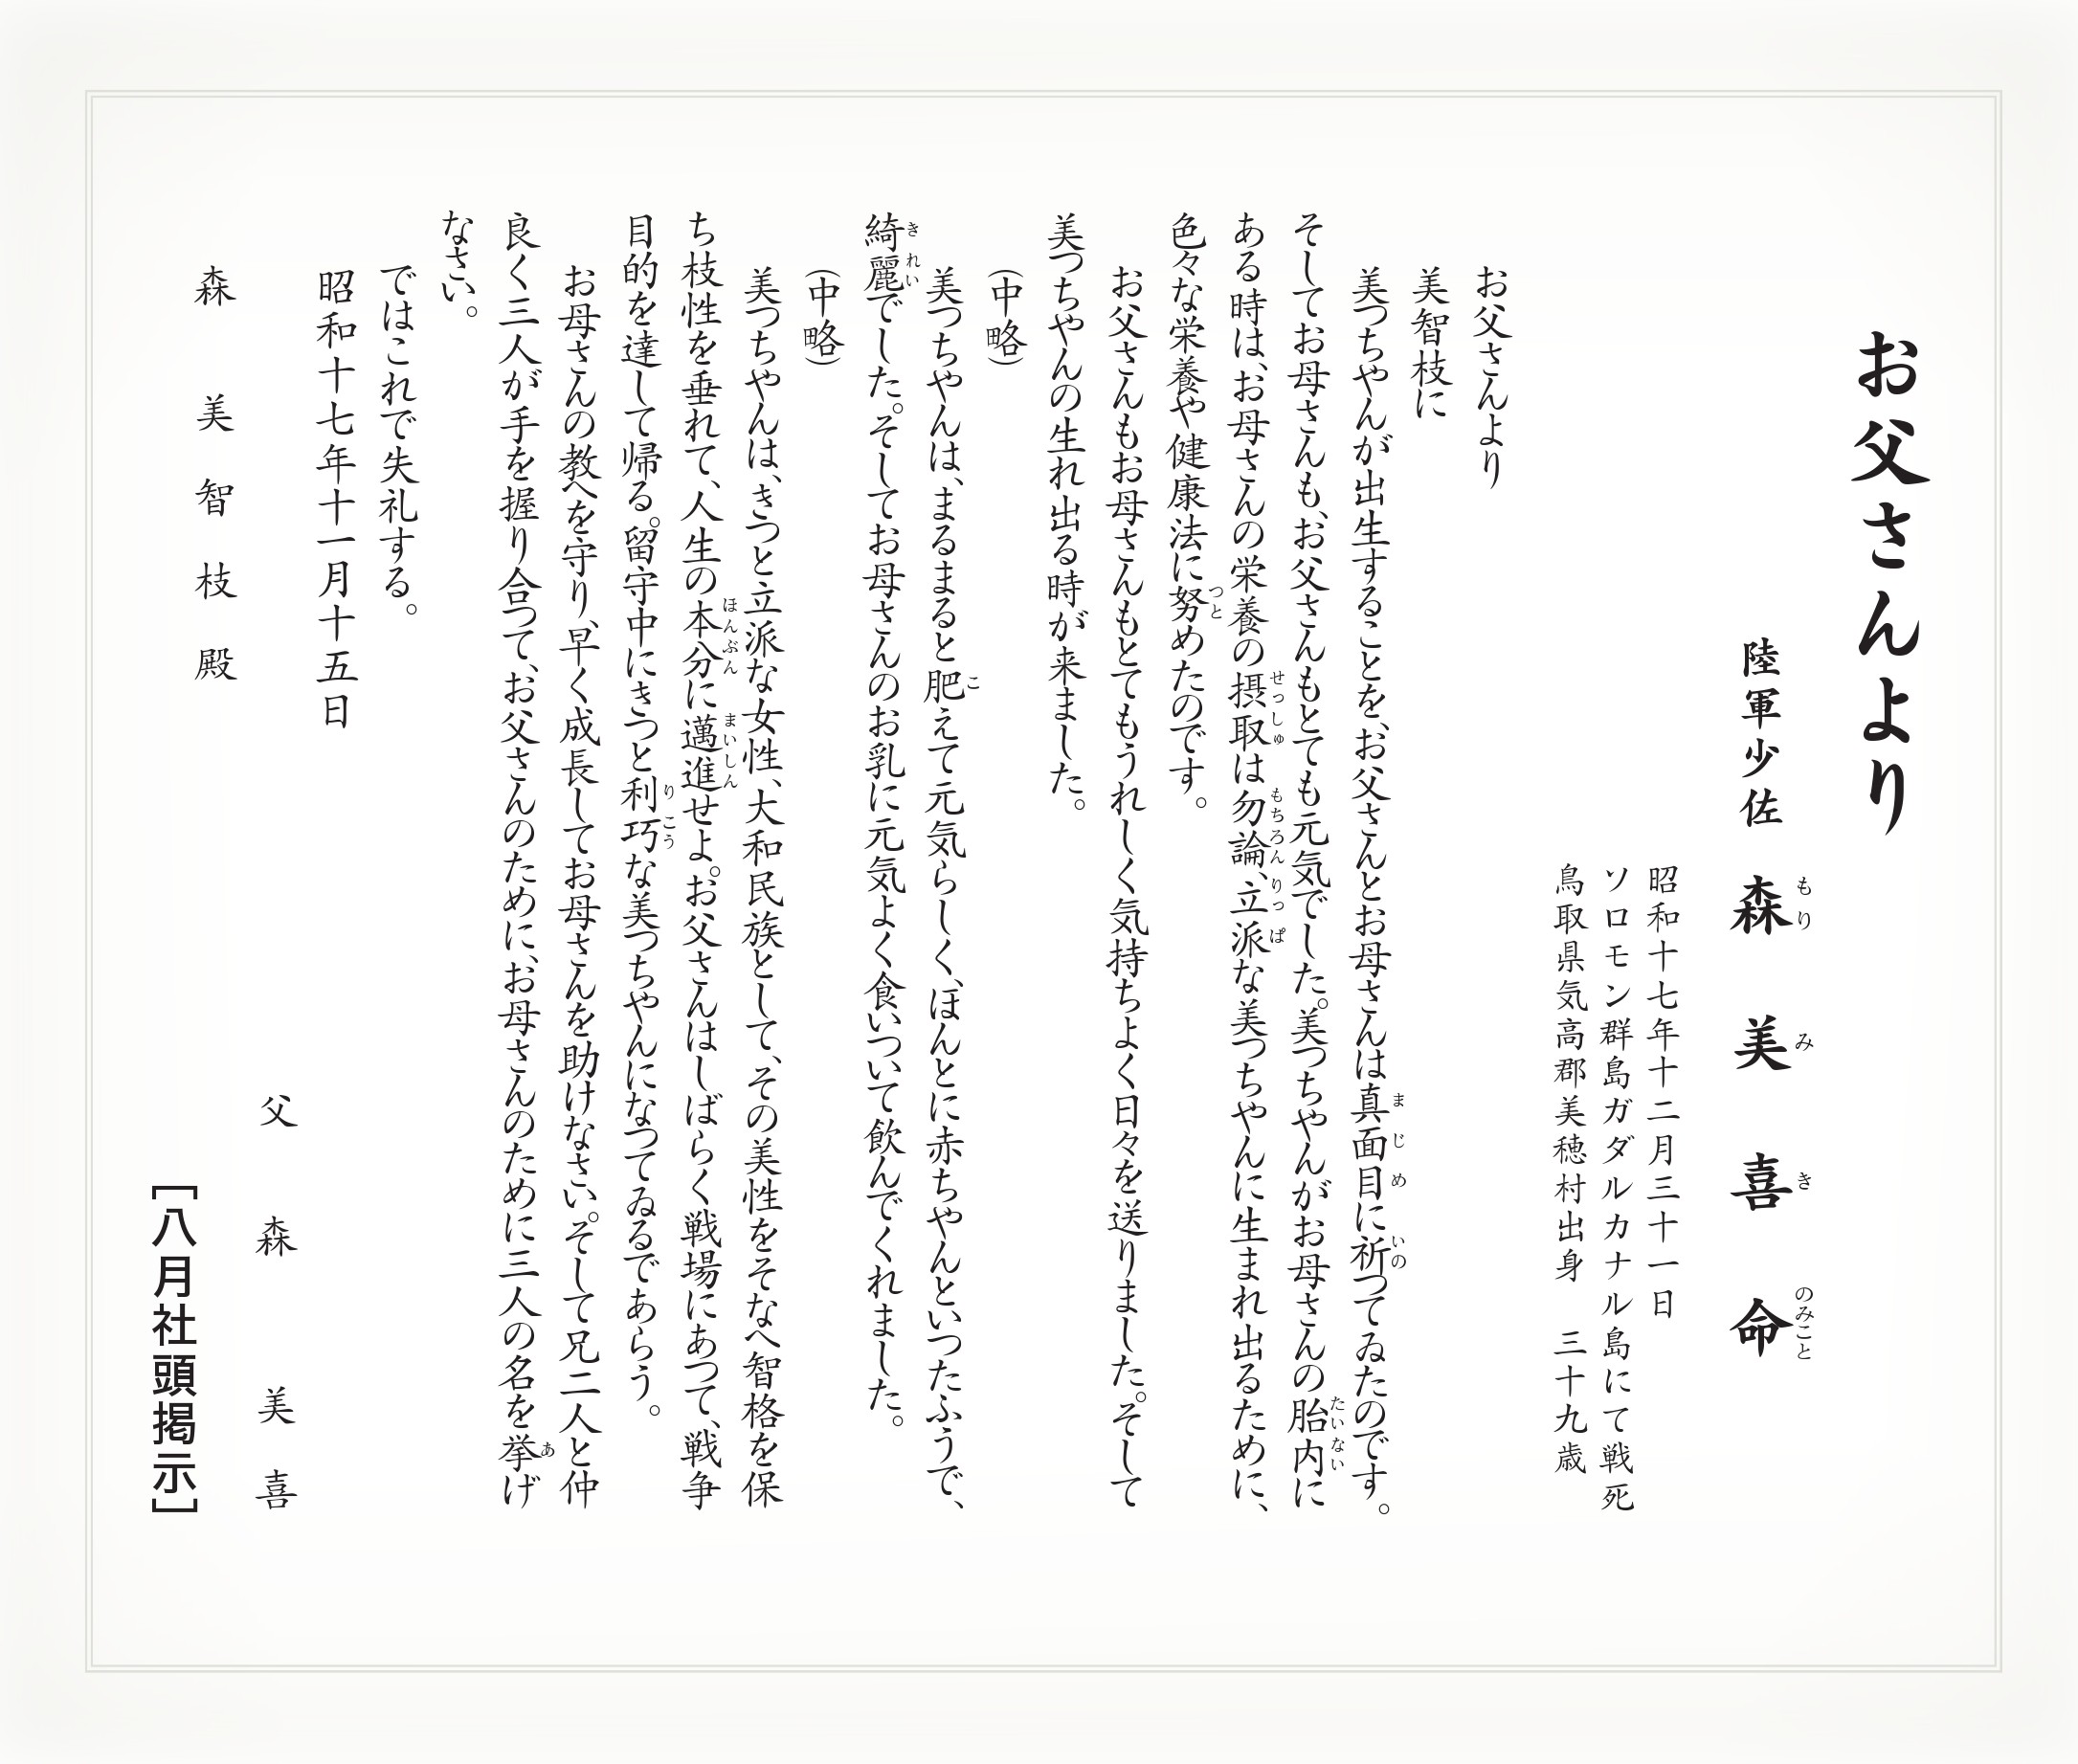 お父さんより
陸軍少佐 森美喜命
もり み き のみこと
昭和十七年十二月三十一日
ソロモン群島ガダルカナル島にて戦死
鳥取県気高郡美穂村出身 三十九歳
お父さんより
美智枝に
美つちやんが出生することを、お父さんとお母さんは真面目に祈つてゐたのです。
まじめ いの
そしてお母さんも、お父さんもとても元気でした。美つちやんがお母さんの胎内に
たいない
ある時は、お母さんの栄養の摂取は勿論、立派な美つちやんに生まれ出るために、
せっしゅ もちろん りっぱ
色々な栄養や健康法に努めたのです。
つと
お父さんもお母さんもとてもうれしく気持ちよく日々を送りました。そして
美つちやんの生れ出る時が来ました。
(中略)
美つちやんは、まるまると肥えて元気らしく、ほんとに赤ちやんといつたふうで、
こ
綺麗でした。そしてお母さんのお乳に元気よく食いついて飲んでくれました。
きれい
(中略)
美つちやんは、きつと立派な女性、大和民族として、その美性をそなへ智格を保
ち枝性を垂れて、人生の本分に邁進せよ。お父さんはしばらく戦場にあつて、戦争
ほんぶん まいしん
目的を達して帰る。留守中にきつと利巧な美つちやんになつてゐるであらう。
りこう
お母さんの教へを守り、早く成長してお母さんを助けなさい。そして兄二人と仲
良く三人が手を握り合つて、お父さんのために、お母さんのために三人の名を挙げ
あ
なさい。
ではこれで失礼する。
昭和十七年十一月十五日
父 森 美喜
森 美智枝殿
[八月社頭掲示]